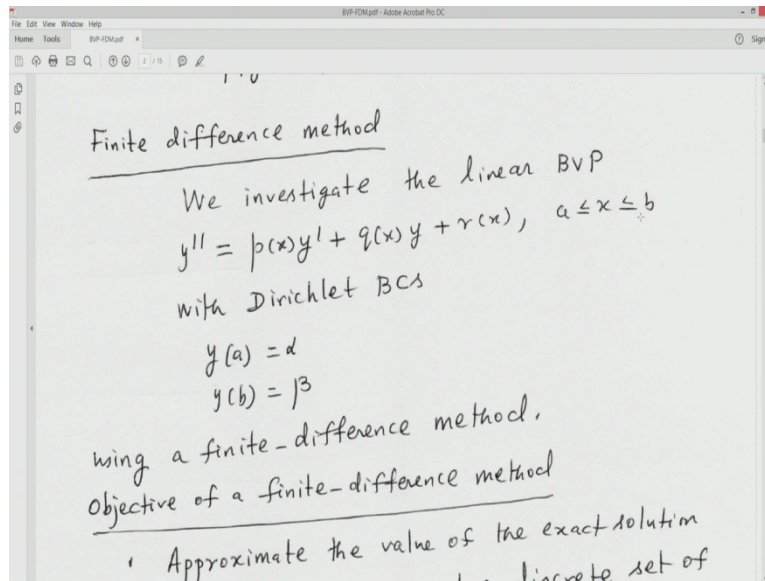 BVP-FDM.pdf - Adobe Acrobat Pro DC
File Edit View Window Help
Home Tools BVP-FDM.pdf × Sign
2 / 15
Finite difference method
We investigate the linear BVP
y'' = p(x)y' + q(x)y + r(x), a ≤ x ≤ b
with Dirichlet BCs
y(a) = α
y(b) = β
using a finite-difference method.
Objective of a finite-difference method
• Approximate the value of the exact solution
discrete set of